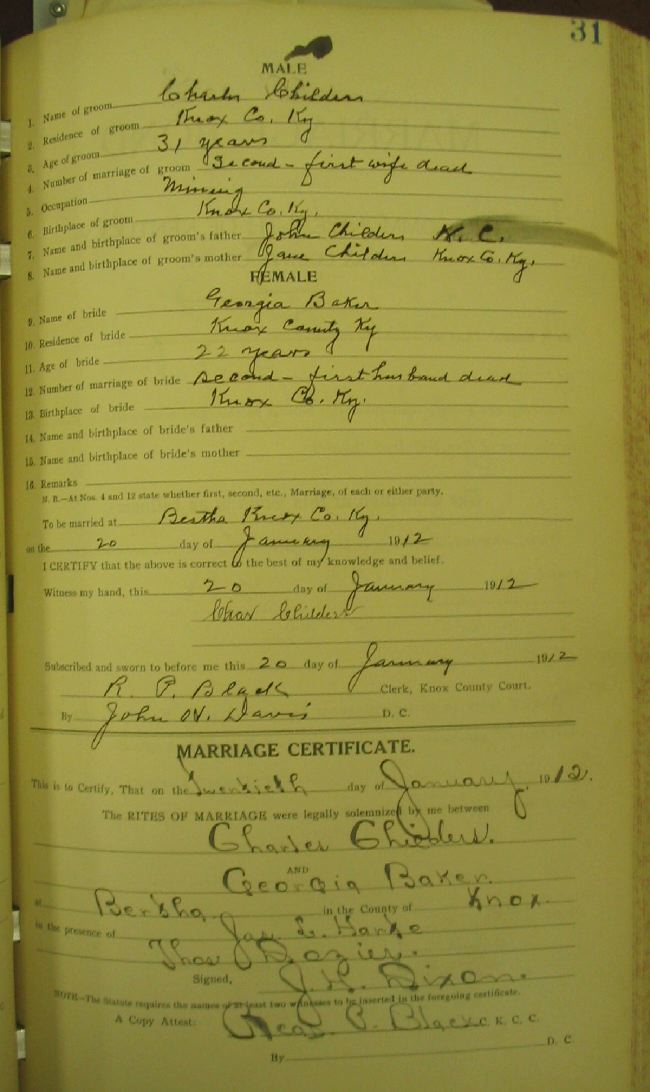 31
MALE
1. Name of groom Charles Childers
2. Residence of groom Knox Co. Ky
3. Age of groom 31 years
4. Number of marriage of groom Second - first wife dead
5. Occupation Mining
6. Birthplace of groom Knox Co. Ky.
7. Name and birthplace of groom's father John Childers N. C.
8. Name and birthplace of groom's mother Jane Childers Knox Co. Ky.
FEMALE
9. Name of bride Georgia Baker
10. Residence of bride Knox County Ky
11. Age of bride 22 years
12. Number of marriage of bride second - first husband dead
13. Birthplace of bride Knox Co. Ky.
14. Name and birthplace of bride's father
15. Name and birthplace of bride's mother
16. Remarks
N. B.—At Nos. 4 and 12 state whether first, second, etc., Marriage, of each or either party.
To be married at Bertha Knox Co. Ky.
on the 20 day of January 1912
I CERTIFY that the above is correct to the best of my knowledge and belief.
Witness my hand, this 20 day of January 1912
Chas Childers
Subscribed and sworn to before me this 20 day of January 1912
R. P. Black Clerk, Knox County Court.
By John W. Davis D. C.
MARRIAGE CERTIFICATE.
This is to Certify, That on the Twentieth day of January, 1912.
The RITES OF MARRIAGE were legally solemnized by me between
Charles Childers.
AND
Georgia Baker.
at Bertha in the County of Knox.
in the presence of Jas.
Thos Dozier.
Signed, J. H. Dixon.
NOTE—The Statute requires the names of at least two witnesses to be inserted in the foregoing certificate.
A Copy Attest: P. Black C. K. C. C.
By D. C.